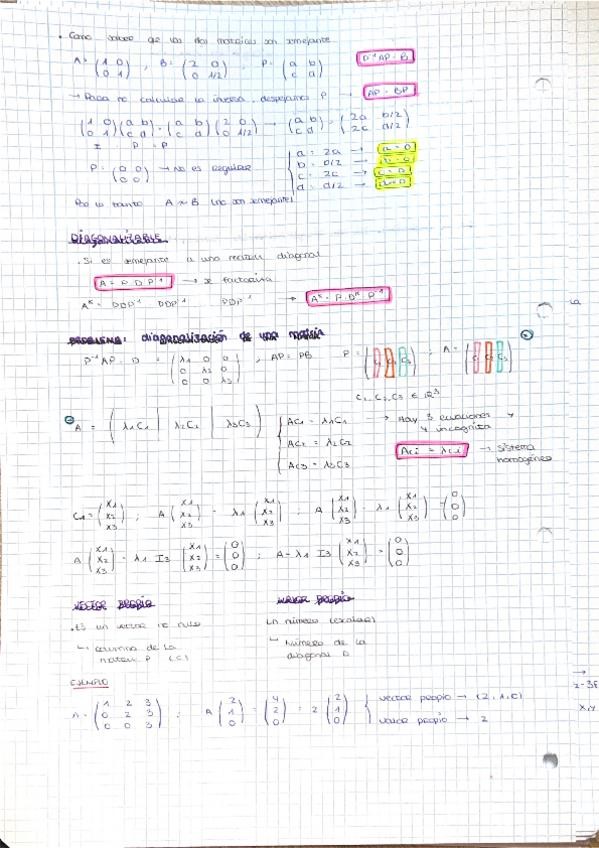 • Como saber de las dos matrices son semejante
A = (1 0 / 0 1) , B = (2 0 / 0 1/2) , P = (a b / c d) P⁻¹AP = B
→ Para no calcular la inversa, despejamos P → AP = BP
(1 0 / 0 1) (a b / c d) = (a b / c d) (2 0 / 0 1/2) → (a b / c d) = (2a b/2 / 2c d/2)
I P = P
a = 2a → a = 0
b = b/2 → b = 0
P = (0 0 / 0 0) → No es regular
c = 2c → c = 0
d = d/2 → d = 0
Por lo tanto A ≁ B (no son semejantes)
DIAGONALIZABLE
• Si es semejante a una matriz diagonal
A = P D P⁻¹ → se factoriza
Aᴷ = PDP⁻¹ PDP⁻¹ PDP⁻¹ → Aᴷ = P Dᴷ P⁻¹
PROBLEMA: diagonalización de una matriz
P⁻¹AP = D = (λ1 0 0 / 0 λ2 0 / 0 0 λ3) ; AP = PB P = (C1 C2 C3) ; A = (C1 C2 C3)
C1, C2, C3 ∈ ℝ³
A = ( λ1C1 | λ2C2 | λ3C3 )
AC1 = λ1C1 → Hay 3 ecuaciones y 4 incognita
AC2 = λ2C2
ACi = λCi → Sistema homogéneo
AC3 = λ3C3
C1 = (x1 / x2 / x3) ; A (x1 / x2 / x3) = λ1 (x1 / x2 / x3) ; A (x1 / x2 / x3) - λ1 (x1 / x2 / x3) = (0 / 0 / 0)
A (x1 / x2 / x3) - λ1 I3 (x1 / x2 / x3) = (0 / 0 / 0) ; A - λ1 I3 (x1 / x2 / x3) = (0 / 0 / 0)
VECTOR PROPIO
• Es un vector no nulo
↳ columna de la matriz P (C)
VALOR PROPIO
Un número (escalar)
↳ Número de la diagonal D
EJEMPLO
A = (1 2 3 / 0 2 3 / 0 0 3) ; A (2 / 1 / 0) = (4 / 2 / 0) = 2 (2 / 1 / 0)
vector propio → (2,1,0)
valor propio → 2